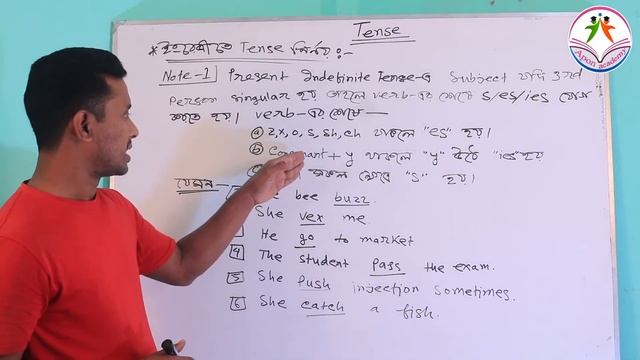 Tense
* ইংরেজীতে Tense নির্ণয় :-
Note-1 Present Indefinite Tense-এ Subject যদি 3rd
Person singular হয় তাহলে verb-এর শেষে s/es/ies যোগ
করতে হয়। verb-এর শেষে—
ⓐ z, x, o, s, sh, ch থাকলে "es" হয়।
ⓑ + y থাকলে "y" উঠে "ies" হয়
"s" হয়।
যেমন— bee buzz.
She vex me.
He go to market
4 The student pass the exam.
5 She push injection sometimes.
6 She catch a fish.
Apon academy